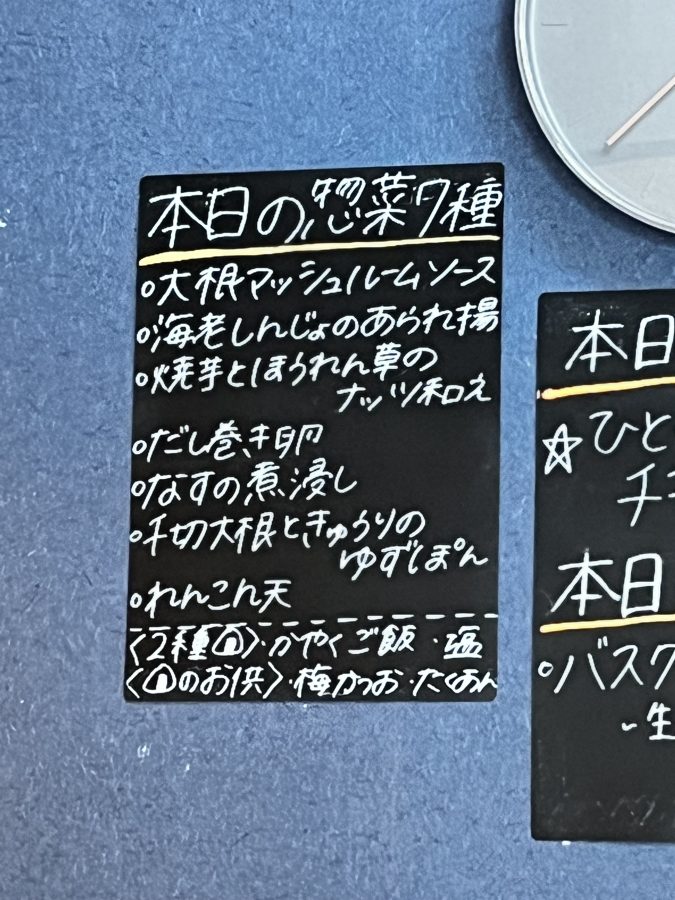 本日の惣菜7種
○大根マッシュルームソース
○海老しんじょのあられ揚
○焼芋とほうれん草の
ナッツ和え
○だし巻き卵
○なすの煮浸し
○千切大根ときゅうりの
ゆずぽん
○れんこん天
〈2種🍙〉・かやくご飯・塩
〈🍙のお供〉・梅かつお・たくあん
本日
☆ひと
チキ
本日
○バスク
-生